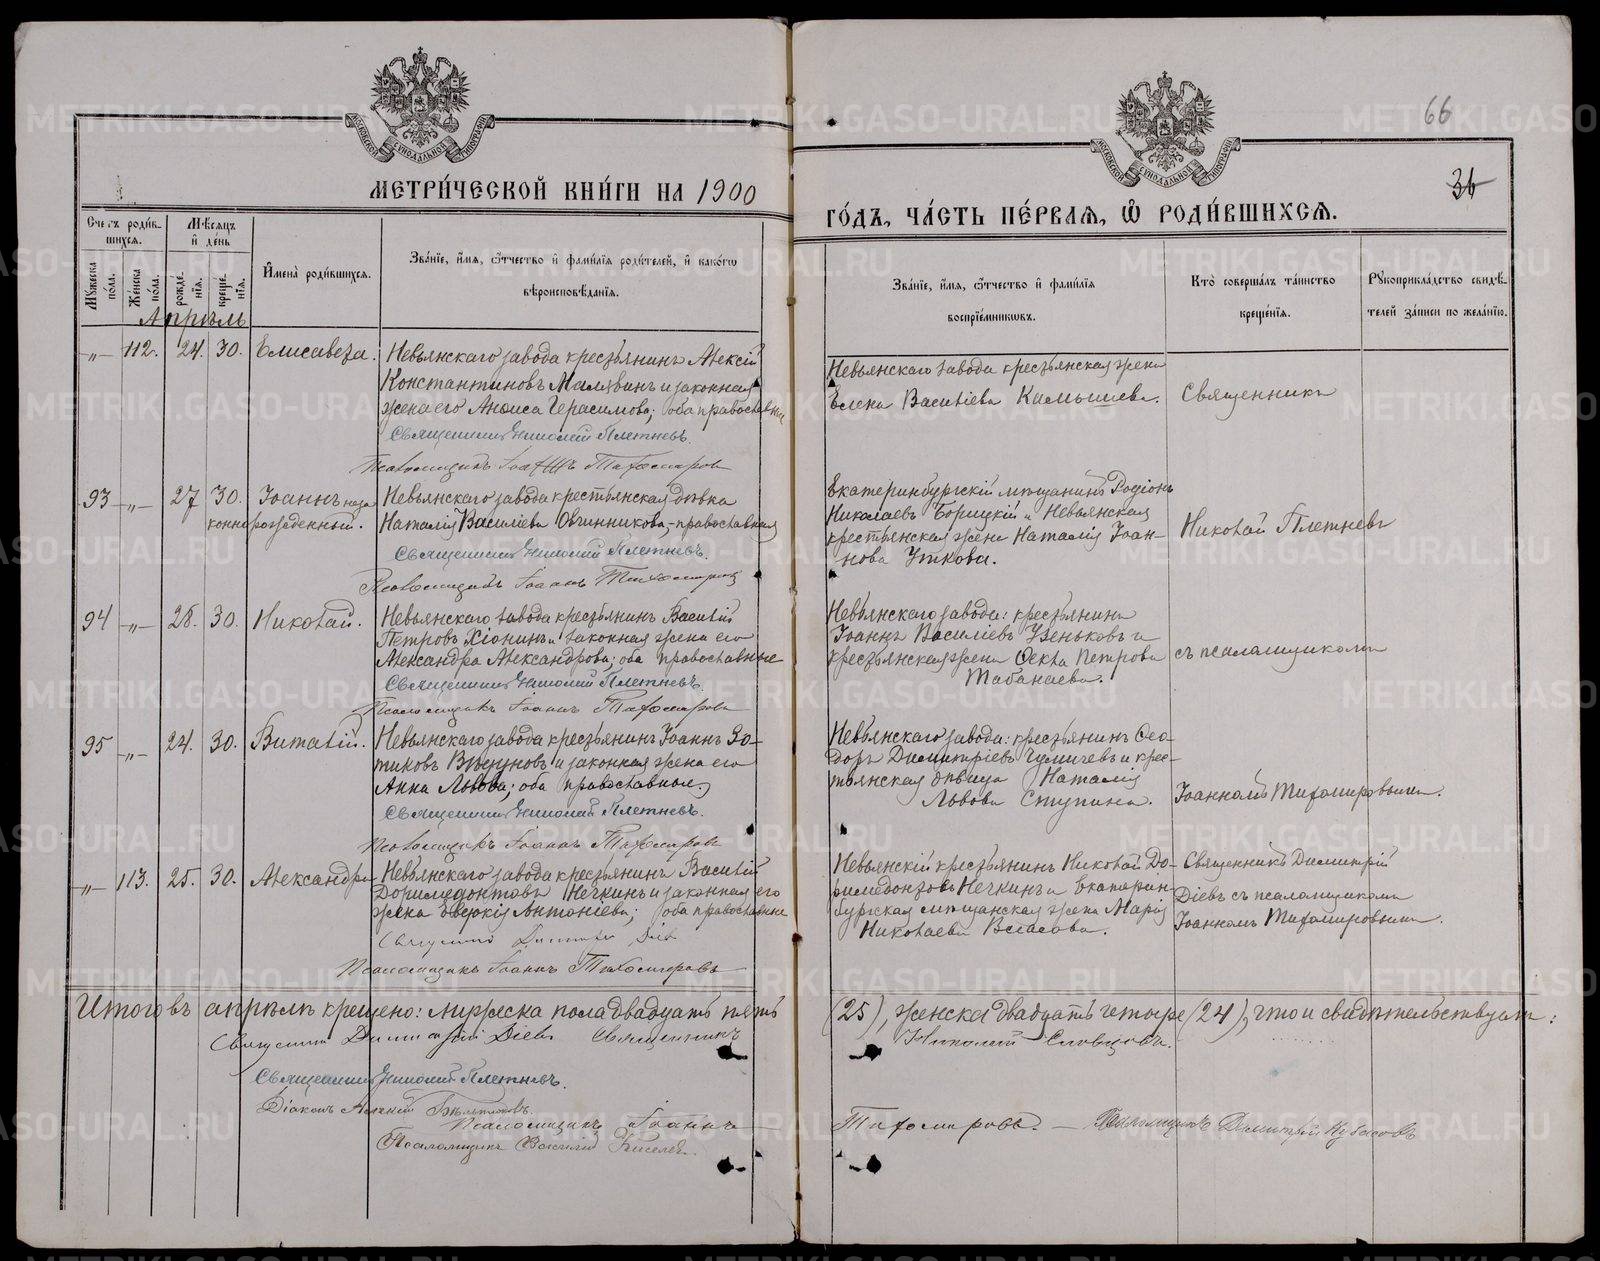 METRIKI.GASO-URAL.RU
66
МОСКОВСКОЙ СѴНОДАЛЬНОЙ ТИПОГРАФІИ
МЕТРИ́ЧЕСКОЙ КНИ́ГИ НА 1900
ГО́ДЪ, ЧА́СТЬ ПЕ́РВАЯ, Ѽ РОДИ́ВШИХСЯ.
36
Счетъ роди́вшихся.
Мꙋжеска по́ла.
Же́нска по́ла.
Мѣ́сяцъ и҆ де́нь
рожде́нїя.
креще́нїя.
И҆мена̀ роди́вшихся.
Зва́нїе, и҆́мя, ѻ҆́тчество и҆ фами́лїя роди́телей, и҆ како́гѡ
вѣроисповѣ́данїя.
Зва́нїе, и҆́мя, ѻ҆́тчество и҆ фами́лїя
воспрїе́мникѡвъ.
Кто̀ соверша́лъ та́инство
креще́нїя.
Рꙋкоприкла́дство свидѣ́телей за́писи по жела́нїю.
Апрѣль
-„- 112. 24. 30. Елисавета. Невьянскаго завода крестьянинъ Алексій
Константиновъ Малявинъ и законная
жена его Аноиса Герасимова; оба православные
Священникъ Николай Плетневъ.
Псаломщикъ Іоаннъ Тихомировъ
Невьянскаго завода крестьянская жена
Елена Василіева Камышева. Священникъ
93 -„- 27 30. Іоаннъ неза
коннорожденный.
Невьянскаго завода крестьянская дѣвка
Наталія Василіева Овчинникова, православная
Священникъ Николай Плетневъ.
Псаломщикъ Іоаннъ Тихомировъ
Екатеринбургскій мѣщанинъ Родіонъ
Николаевъ Борицкій и Невьянская
крестьянская жена Наталія Іоан-
нова Уткова.
Николай Плетневъ
94 -„- 28. 30. Николай. Невьянскаго завода крестьянинъ Василій
Петровъ Хіонинъ и законная жена его
Александра Александрова; оба православные
Священникъ Николай Плетневъ.
Псаломщикъ Іоаннъ Тихомировъ
Невьянскаго завода: крестьянинъ
Іоаннъ Василіевъ Узеньковъ и
крестьянская жена Ѳекла Петрова
Табанаева.
съ псаломщикомъ
95 -„- 24. 30. Виталій. Невьянскаго завода крестьянинъ Іоаннъ Зо-
тиковъ и законная жена его
Анна Львова; оба православные.
Священникъ Николай Плетневъ.
Псаломщикъ Іоаннъ Тихомировъ
Невьянскаго завода: крестьянинъ Ѳео-
доръ Димитріевъ Чумичевъ и крес-
тьянская дѣвица Наталія
Львова Ступина.
Іоанномъ Тихомировымъ.
-„- 113. 25. 30. Александра Невьянскаго завода крестьянинъ Василій
Доримедонтовъ Нечкинъ и законная его
жена Евдокія Антоніева; оба православные
Священникъ Димитрій Діевъ
Псаломщикъ Іоаннъ Тихомировъ
Невьянскій крестьянинъ Николай До-
римедонтовъ Нечкинъ и Екатерин-
бургская мѣщанская жена Марія
Николаева Власова.
Священникъ Димитрій
Діевъ съ псаломщикомъ
Іоанномъ Тихомировымъ.
Итого въ апрѣлѣ крещено: мужеска пола двадцать пять (25), женска двадцать четыре (24), что и свидѣтельствуемъ:
Священникъ Димитрій Діевъ Священникъ Николай Словцовъ.
Священникъ Николай Плетневъ.
Діаконъ Алексій
Псаломщикъ Іоаннъ Тихомировъ. — Псаломщикъ Димитрій Кубасовъ
Псаломщикъ Василій Киселевъ.